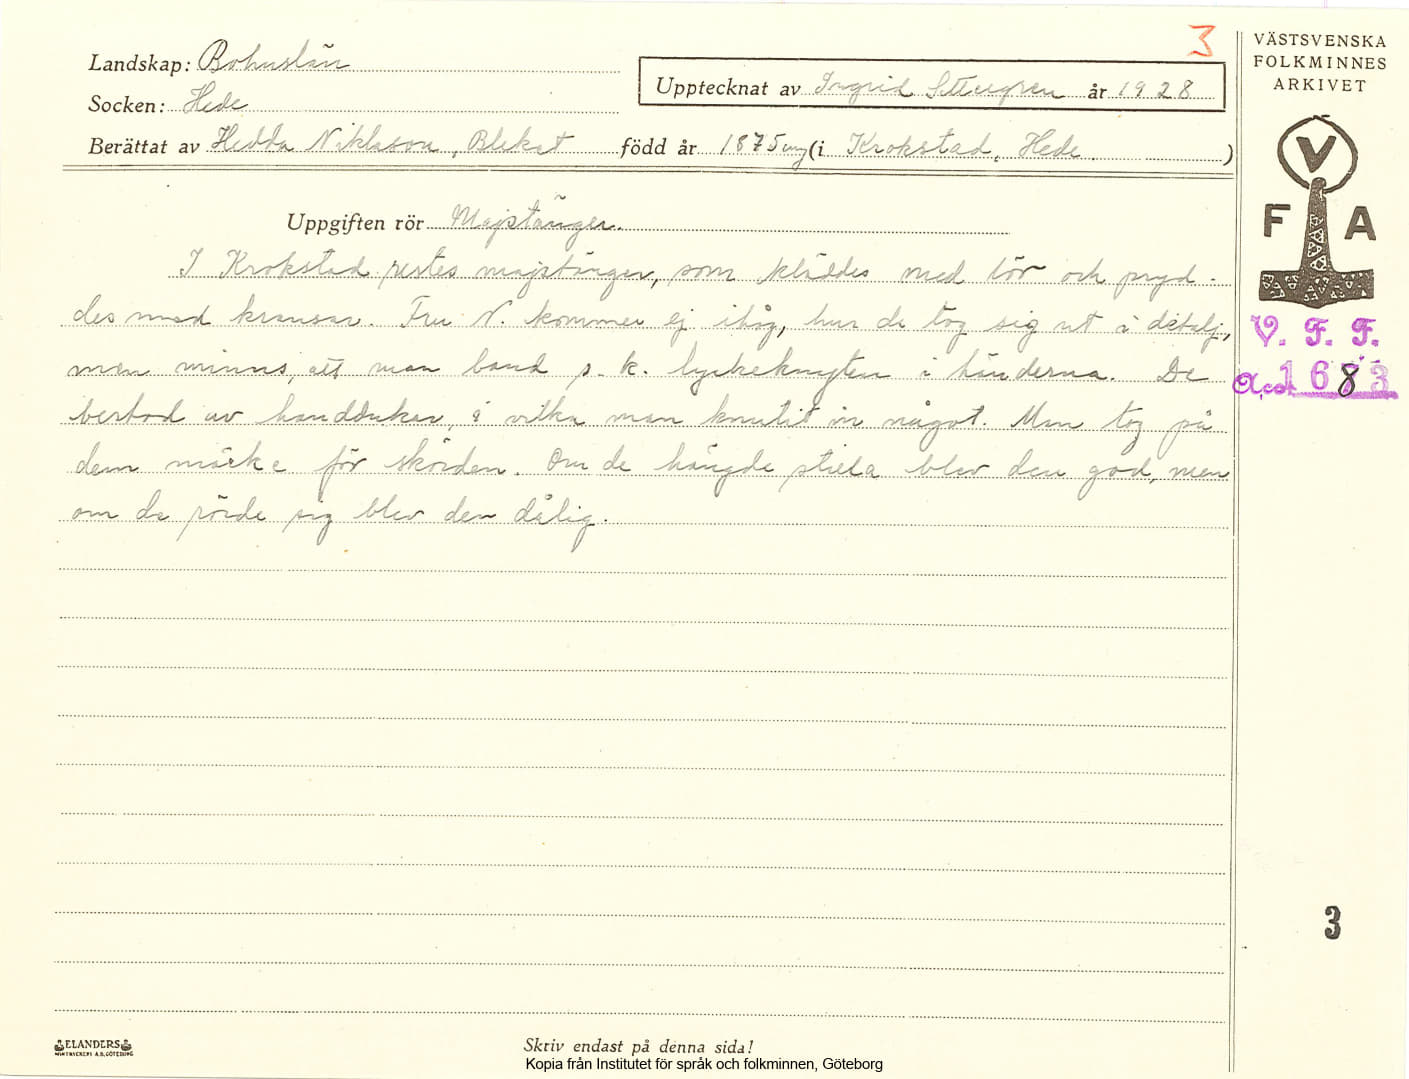 3
Landskap: Bohuslän
Upptecknat av Ingrid år 1928
Socken: Hede
Berättat av Hedda Niklason, Blekat född år 1875 (i Krokstad, Hede.)
Uppgiften rör Majstänger.
I Krokstad restes majstänger, som kläddes med löv och pryd-
des med kransar. Fru N. kommer ej ihåg, hur de tog sig ut i detalj,
men minns, att man band s.k. lyckeknyten i händerna. De
bestod av handdukar, i vilka man knutit in något. Man tog på
dem märke för skörden. Om de hängde stilla blev den god, men
om de rörde sig blev den dålig.
VÄSTSVENSKA
FOLKMINNES
ARKIVET
V
F A
V. F. F.
Acc. 1683
3
ELANDERS
Skriv endast på denna sida!
Kopia från Institutet för språk och folkminnen, Göteborg